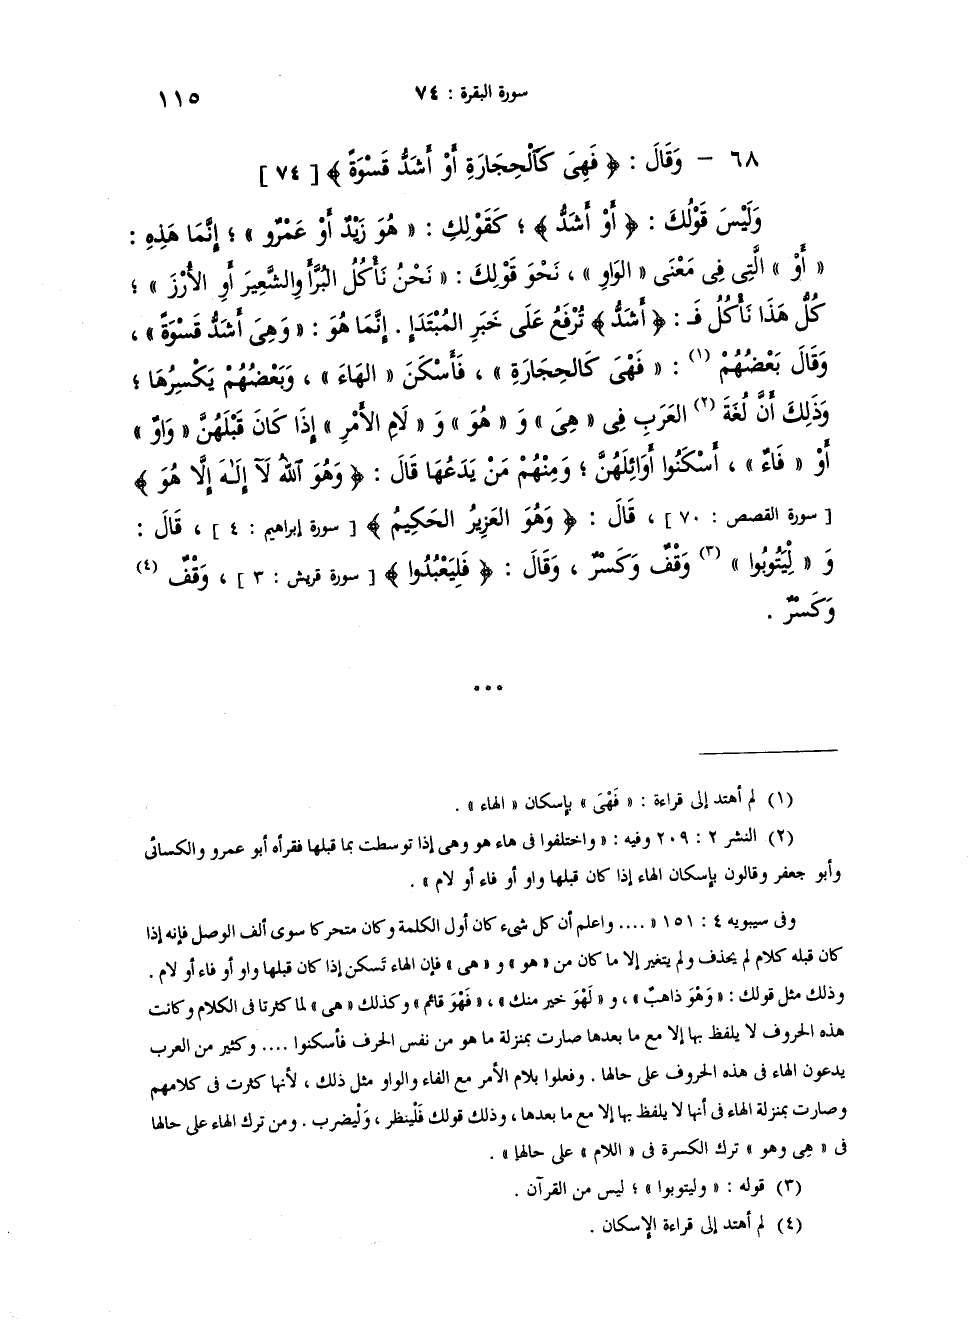 سورة البقرة : ٧٤
١١٥
٦٨ – وَقَالَ : ﴿ فَهِىَ كَٱلْحِجَارَةِ أَوْ أَشَدُّ قَسْوَةً ﴾ [ ٧٤ ]
وَلَيْسَ قَوْلُكَ : ﴿ أَوْ أَشَدُّ ﴾ ؛ كَقَوْلِكِ : « هُوَ زَيْدٌ أَوْ عَمْرٌو » ؛ إِنَّمَا هَذِهِ :
« أَوْ » الَّتِى فِى مَعْنَى « الوَاوِ » ، نَحْوَ قَوْلِكَ : « نَحْنُ نَأْكُلُ البُرَّ أَوِ الشَّعِيرَ أَوِ الأُرْزَ » ؛
كُلُّ هَذَا نَأْكُلُ فَـ : ﴿ أَشَدُّ ﴾ تُرْفَعُ عَلَى خَبَرِ المُبْتَدَإِ . إِنَّمَا هُوَ : « وَهِىَ أَشَدُّ قَسْوَةً » ،
وَقَالَ بَعْضُهُمْ (١) : « فَهْىَ كَالحِجَارَةِ » ، فَأَسْكَنَ « الهَاءَ » ، وَبَعْضُهُمْ يَكْسِرُهَا ؛
وَذَلِكَ أَنَّ لُغَةَ (٢) العَرَبِ فِى « هِىَ » وَ « هُوَ » وَ « لَامِ الأَمْرِ » إِذَا كَانَ قَبْلَهُنَّ « وَاوٌ »
أَوْ « فَاءٌ » ، أَسْكَنُوا أَوَائِلَهُنَّ ؛ وَمِنْهُمْ مَنْ يَدَعُهَا قَالَ : ﴿ وَهُوَ ٱللهُ لَآ إِلَـٰهَ إِلَّا هُوَ ﴾
[ سورة القصص : ٧٠ ] ، قَالَ : ﴿ وَهُوَ العَزِيزُ الحَكِيمُ ﴾ [ سورة إبراهيم : ٤ ] ، قَالَ :
وَ « لِْيَتُوبُوا » (٣) وَقْفٌ وَكَسْرٌ ، وَقَالَ : ﴿ فَلِيَعْبُدُوا ﴾ [ سورة قريش : ٣ ] ، وَقْفٌ (٤)
وَكَسْرٌ .
• • •
(١) لم أهتد إلى قراءة : « فَهْىَ » بإسكان « الهاء » .
(٢) النشر ٢ : ٢٠٩ وفيه : « واختلفوا فى هاء هو وهى إذا توسطت بما قبلها فقرأه أبو عمرو والكسائى
وأبو جعفر وقالون بإسكان الهاء إذا كان قبلها واو أو فاء أو لام » .
وفى سيبويه ٤ : ١٥١ « .... واعلم أن كل شىء كان أول الكلمة وكان متحركا سوى ألف الوصل فإنه إذا
كان قبله كلام لم يحذف ولم يتغير إلا ما كان من « هو » و « هى » فإن الهاء تَسكن إذا كان قبلها واو أو فاء أو لام .
وذلك مثل قولك : « وَهْوَ ذاهبٌ » ، و « لَهْوَ خير منك » ، « فَهْوَ قائم » وكذلك « هى » لما كثرتا فى الكلام وكانت
هذه الحروف لا يلفظ بها إلا مع ما بعدها صارت بمنزلة ما هو من نفس الحرف فأسكنوا .... وكثير من العرب
يدعون الهاء فى هذه الحروف على حالها . وفعلوا بلام الأمر مع الفاء والواو مثل ذلك ، لأنها كثرت فى كلامهم
وصارت بمنزلة الهاء فى أنها لا يلفظ بها إلا مع ما بعدها ، وذلك قولك فَلْينظر ، وَلْيضرب . ومن ترك الهاء على حالها
فى « هِى وهو » ترك الكسرة فى « اللام » على حالها » .
(٣) قوله : « وليتوبوا » ؛ ليس من القرآن .
(٤) لم أهتد إلى قراءة الإسكان .